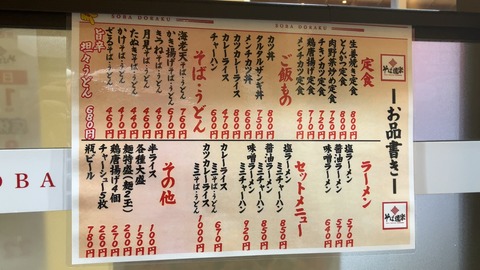 SOBA DOKORO
SOBA DOKORO
そば道楽
お品書き
そば道楽
定食
生姜焼き定食 800円
とんかつ定食 800円
肉野菜炒め定食
チキンカツ定食
鶏唐揚げ定食
メンチカツ定食 640円
ご飯もの
カツ丼 800円
タルタルザンギ丼
カツカレーライス
メンチカツ丼
カレーライス
チャーハン
そば・うどん
海老天そば・うどん
かき揚げそば・うどん
きつねそば・うどん
月見そば・うどん
たぬきそば・うどん
かけそば・うどん
ざるそば・うどん
旨辛
担々うどん 680円
ラーメン
塩ラーメン 570円
醤油ラーメン 540円
味噌ラーメン 640円
セットメニュー
塩ラーメン ミニチャーハン 850円
醤油ラーメン ミニチャーハン 850円
味噌ラーメン ミニチャーハン 920円
カレーライス ミニそば・うどん 670円
カツカレーライス ミニそば・うどん 1000円
その他
半ライス 100円
各種大盛 150円
麺特盛(麺2玉) 200円
鶏唐揚げ4個 270円
チャーシュー5枚 260円
瓶ビール 780円
OBA